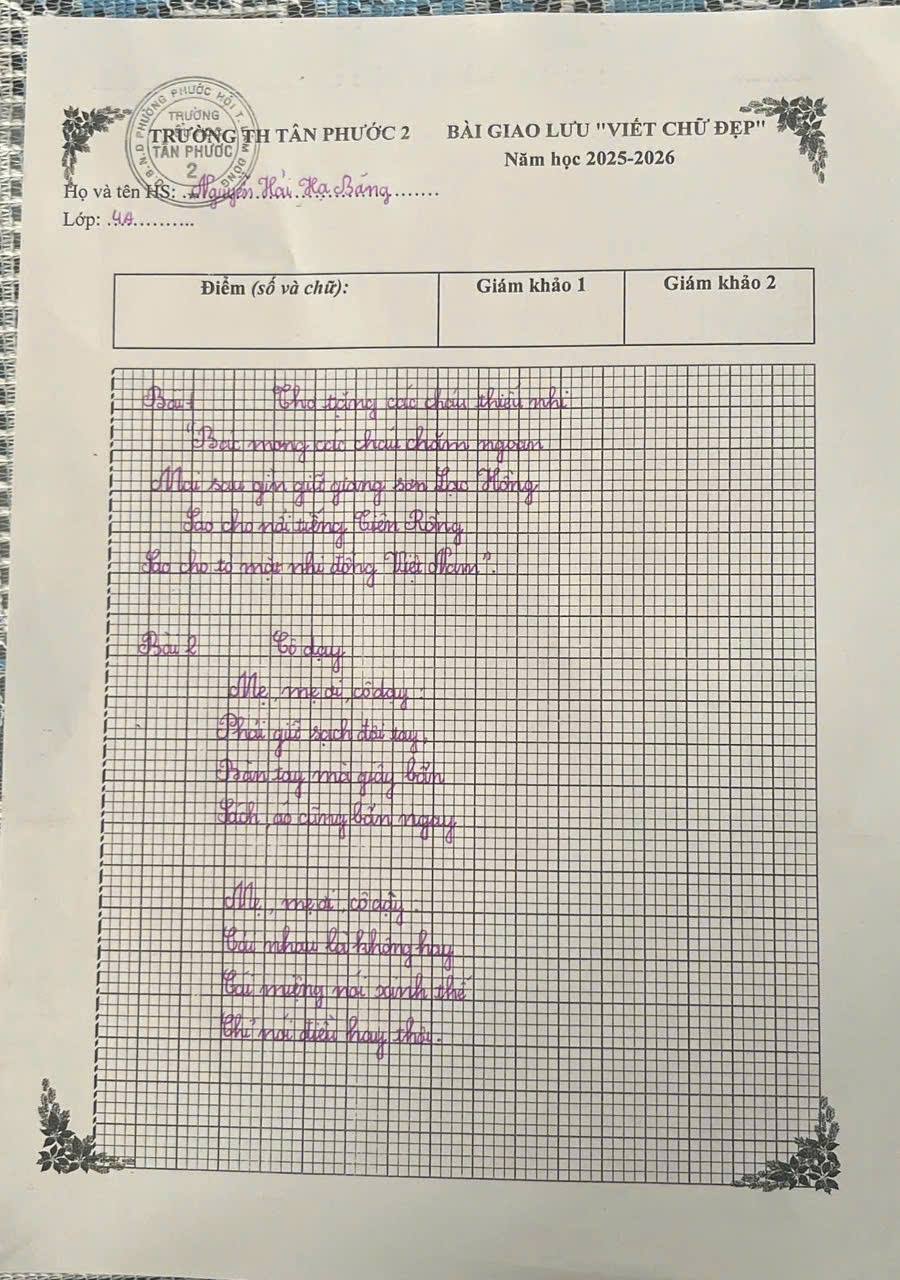 TRƯỜNG TH TÂN PHƯỚC 2
BÀI GIAO LƯU "VIẾT CHỮ ĐẸP"
Năm học 2025-2026
TRƯỜNG
TÂN PHƯỚC
2
Họ và tên HS: Nguyễn Hải Hạ Băng
Lớp: 4A
Điểm (số và chữ):
Giám khảo 1
Giám khảo 2
Bài 1 Thơ tặng các cháu thiếu nhi
"Bác mong các cháu chăm ngoan
Mai sau gìn giữ giang sơn Lạc Hồng
Sao cho nổi tiếng Tiên Rồng
Sao cho tỏ mặt nhi đồng Việt Nam".
Bài 2 Cô dạy
Mẹ, mẹ ơi, cô dạy:
Phải giữ sạch đôi tay,
Bàn tay mà giây bẩn
Sách, áo cũng bẩn ngay
Mẹ, mẹ ơi, cô dạy:
Cãi nhau là không hay
Cái miệng nói xinh thế
Chỉ nói điều hay thôi.